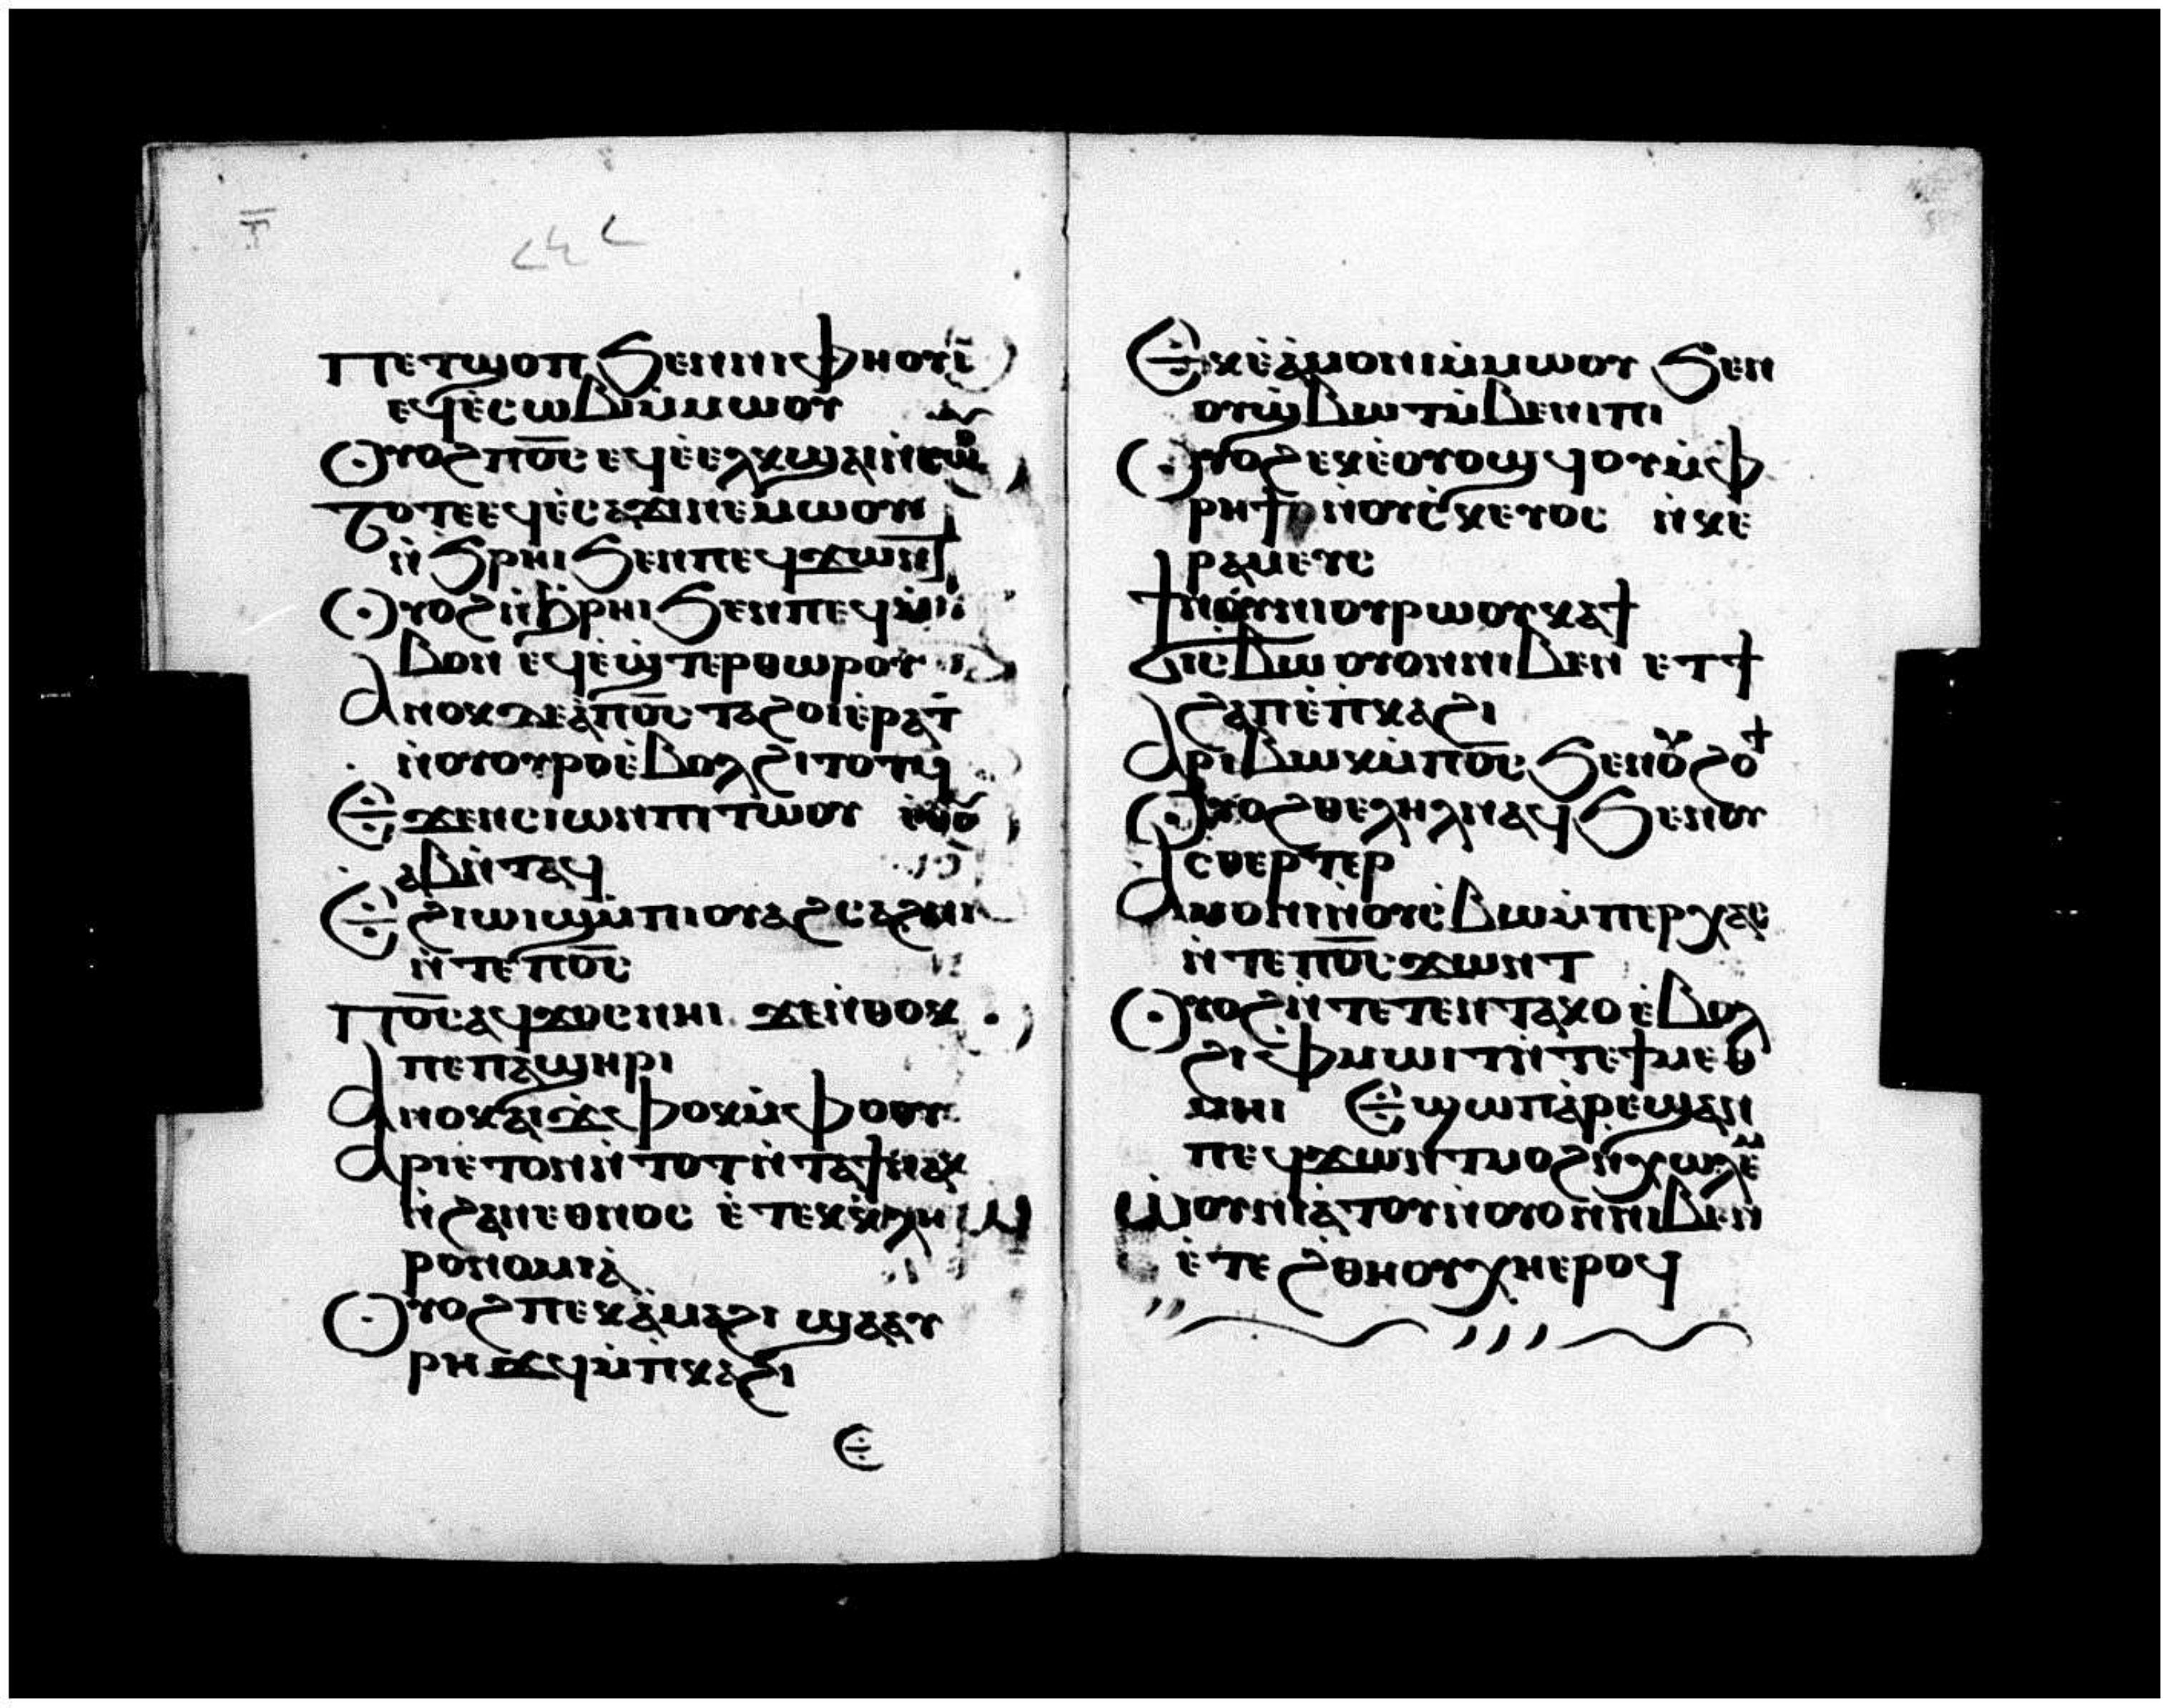 ⲡⲉⲧϣⲟⲡ ϧⲉⲛⲛⲓⲫⲏⲟⲩⲓ̀
ⲉϥⲉ̀ⲥⲱⲃⲓⲙ̀ⲙⲱⲟⲩ
Ⲟⲩⲟϩ ⲡⲟ̅ⲥ̅ ⲉϥⲉ̀ⲉⲗⲕϣⲁⲓⲛ̀ⲥⲱⲟⲩ
ⲧⲟⲧⲉ ⲉϥⲉ̀ⲥⲁϫⲓⲛⲉⲙⲱⲟⲩ
ⲛ̀ϧⲣⲏⲓ ϧⲉⲛⲡⲉϥϫⲱⲛⲧ
Ⲟⲩⲟϩ ⲛ̀ϧⲣⲏⲓ ϧⲉⲛⲡⲉϥⲙ̀
ⲃⲟⲛ ⲉϥⲉ̀ϣⲧⲉⲣⲑⲱⲣⲟⲩ
Ⲁⲛⲟⲕ ⲇⲉ ⲁ̀ⲡⲟ̅ⲥ̅ ⲧⲁϩⲟⲓ ⲉ̀ⲣⲁⲧ
ⲛ̀ⲟⲩⲟⲩⲣⲟ ⲉ̀ⲃⲟⲗ ϩⲓⲧⲟⲧϥ
Ⲉϫⲉⲛ ⲥⲓⲱⲛ ⲡⲓⲧⲱⲟⲩ ⲉ̀ⲑⲟⲩ
ⲁⲃ ⲛ̀ⲧⲁϥ
Ⲉϩⲓⲱⲓϣ ⲙ̀ⲡⲓⲟⲩⲁϩⲥⲁϩⲛⲓ
ⲛ̀ⲧⲉ ⲡⲟ̅ⲥ̅
Ⲡⲟ̅ⲥ̅ ⲁϥϫⲟⲥ ⲛⲏⲓ ϫⲉ ⲛ̀ⲑⲟⲕ
ⲡⲉ ⲡⲁϣⲏⲣⲓ
Ⲁⲛⲟⲕ ⲁⲓϫ̀ⲫⲟⲕ ⲙ̀ⲫⲟⲟⲩ
Ⲁⲣⲓⲉⲧⲓⲛ ⲛ̀ⲧⲟⲧ ⲛ̀ⲧⲁϯⲛⲁⲕ
ⲛ̀ϩⲁⲛⲉⲑⲛⲟⲥ ⲉ̀ⲧⲉⲕⲕ̀ⲗⲏ
ⲣⲟⲛⲟⲙⲓⲁ̀
Ⲟⲩⲟϩ ⲡⲉⲕⲁ̀ⲙⲁϩⲓ ϣⲁ ⲁⲩ
ⲣⲏϫϥ ⲙ̀ⲡ̀ⲕⲁϩⲓ
Ⲉ
Ⲉⲕⲉ̀ⲁ̀ⲙⲟⲛⲓ ⲙ̀ⲙⲱⲟⲩ ϧⲉⲛ
ⲟⲩϣ̀ⲃⲱⲧ ⲙ̀ⲃⲉⲛⲓⲡⲓ
Ⲟⲩⲟϩ ⲉⲕⲉ̀ⲟⲩⲟϣϥⲟⲩ ⲙ̀ⲫ
ⲣⲏϯ ⲛ̀ⲟⲩⲥ̀ⲕⲉⲩⲟⲥ ⲛ̀ⲕⲉ
ⲣⲁⲙⲉⲩⲥ
Ϯⲛⲟⲩ ⲛⲓⲟⲩⲣⲱⲟⲩ ⲕⲁϯ
ϭⲓⲥⲃⲱ ⲟⲩⲟⲛ ⲛⲓⲃⲉⲛ ⲉⲧϯ
ϩⲁⲡ ⲉ̀ⲡ̀ⲕⲁϩⲓ
Ⲁⲣⲓⲃⲱⲕ ⲙ̀ⲡⲟ̅ⲥ̅ ϧⲉⲛ ⲟⲩϩⲟϯ
Ⲟⲩⲟϩ ⲑⲉⲗⲏⲗ ⲛⲁϥ ϧⲉⲛ ⲟⲩ
ⲥⲑⲉⲣⲧⲉⲣ
Ⲁⲙⲟⲛⲓ ⲛ̀ⲟⲩⲥ̀ⲃⲱ ⲙ̀ⲡⲉⲣⲭⲁⲥ
ⲛ̀ⲧⲉ ⲡⲟ̅ⲥ̅ ϫⲱⲛⲧ
Ⲟⲩⲟϩ ⲛ̀ⲧⲉⲧⲉⲛⲧⲁⲕⲟ ⲉ̀ⲃⲟⲗ
ϩⲓ ⲫⲙⲱⲓⲧ ⲛ̀ⲧⲉ ϯⲙⲉⲑ
ⲙⲏⲓ Ⲉϣⲱⲡ ⲁⲣⲉϣⲁⲛ
ⲡⲉϥϫⲱⲛⲧ ⲙⲟϩ ⲛ̀ⲭⲱⲗⲉⲙ
Ⲱⲟⲩⲛⲓⲁ̀ⲧⲟⲩ ⲛ̀ⲟⲩⲟⲛ ⲛⲓⲃⲉⲛ
ⲉ̀ⲧⲉ ϩⲑⲏⲟⲩ ⲭⲏ ⲉⲣⲟϥ